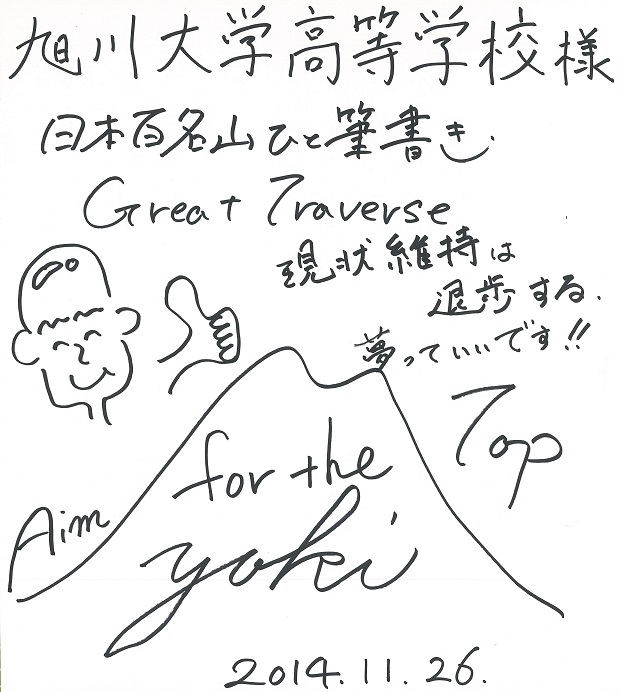 旭川大学高等学校様
日本百名山ひと筆書き.
Great Traverse
現状維持は
退歩する.
夢っていいです!!
Aim for the Top
yoki
2014.11.26.